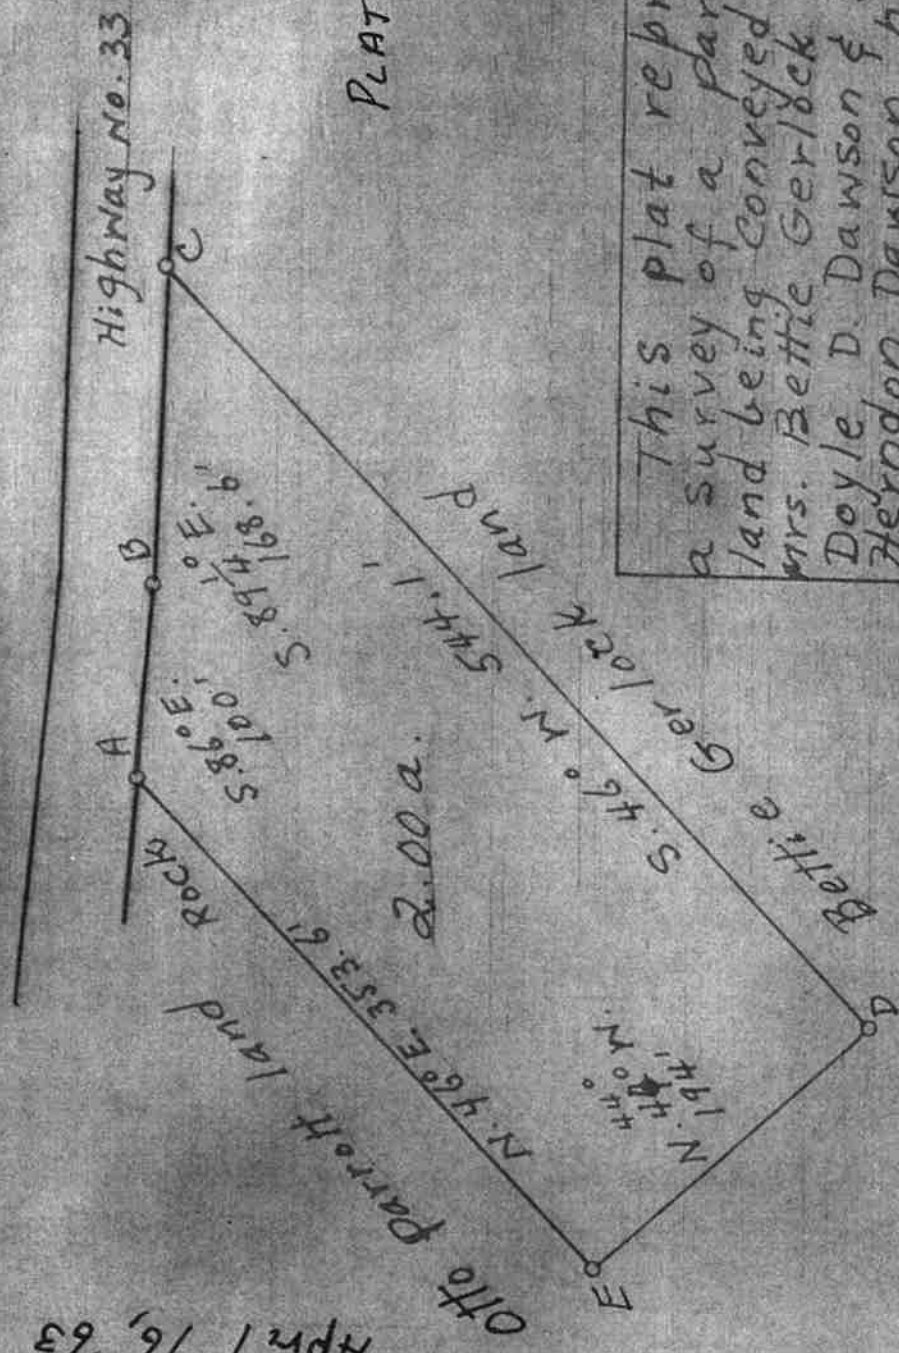 Highway No. 33
A
B
C
Rock
S. 86° E.
100'
S. 89¼° E.
168.6'
544.1'
S. 46° W.
Bettie Gerlock land
2.00 a.
N. 46° E. 353.6'
Otto Parrott land
44°
N. W.
194'
D
E
PLAT
This plat
a survey of a
land being Conveyed
Mrs. Bettie Gerlock
Doyle D. Dawson &
Herndon Dawson
April 16, 63